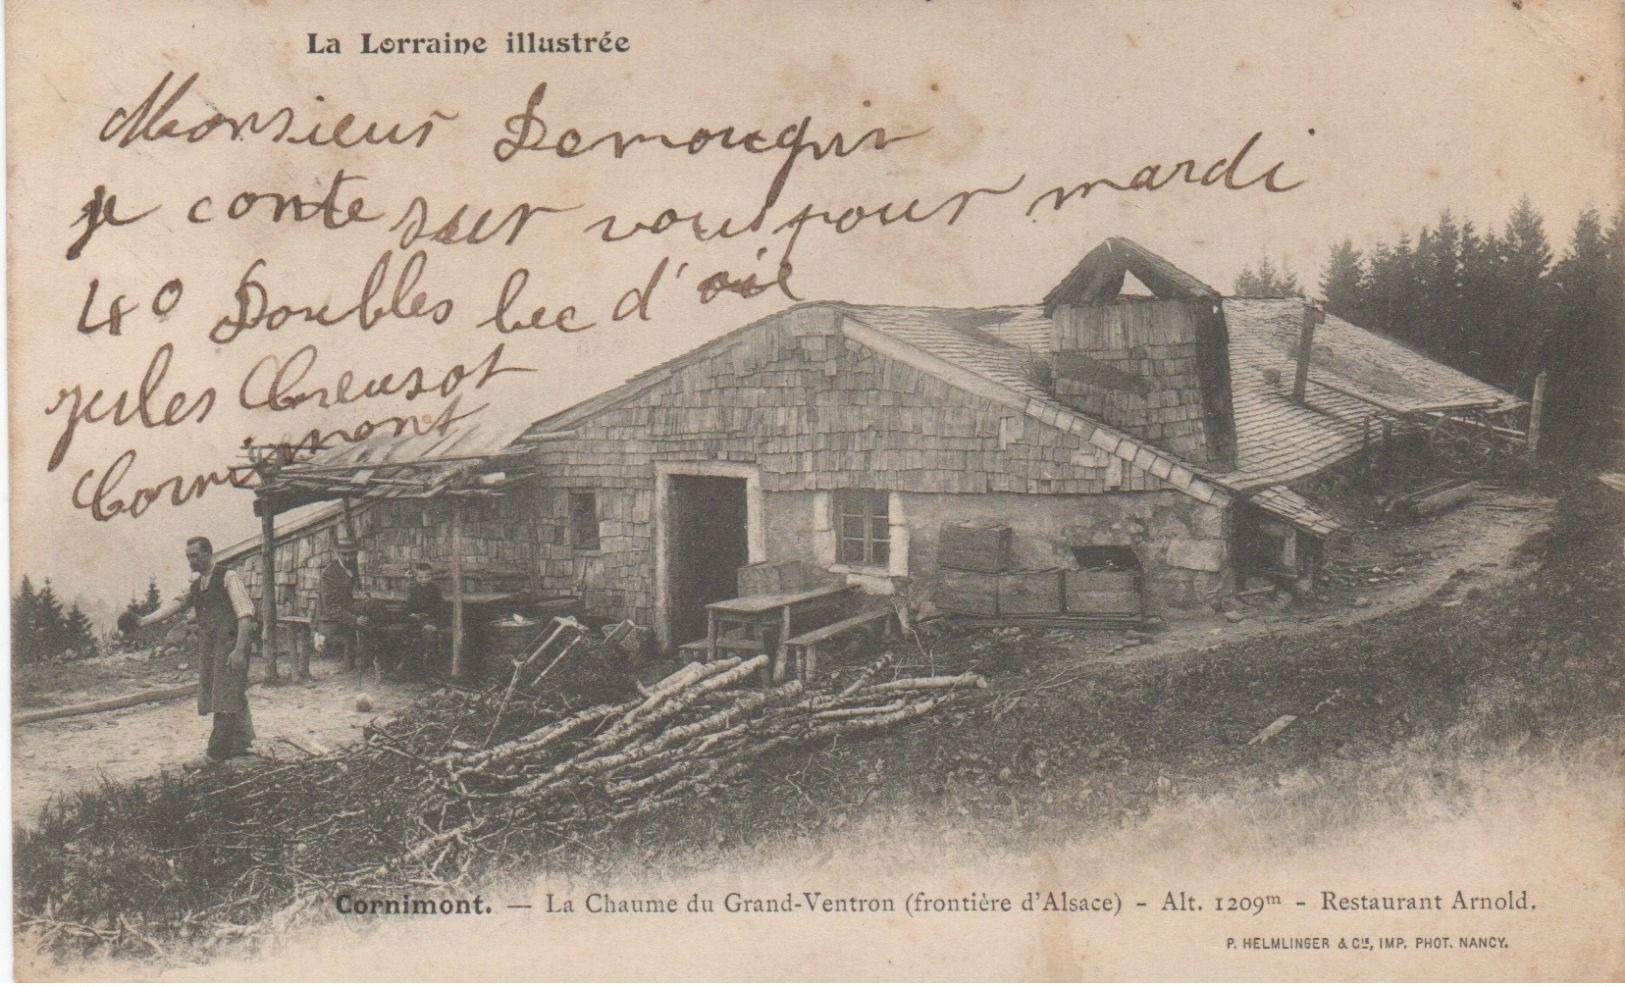 La Lorraine illustrée
Monsieur Demougin
je conte sur vous pour mardi
40 Doubles bec d'oie
jules Creusot
Cornimont
Cornimont. — La Chaume du Grand-Ventron (frontière d'Alsace) - Alt. 1209m - Restaurant Arnold.
P. HELMLINGER & Cie, IMP. PHOT. NANCY.